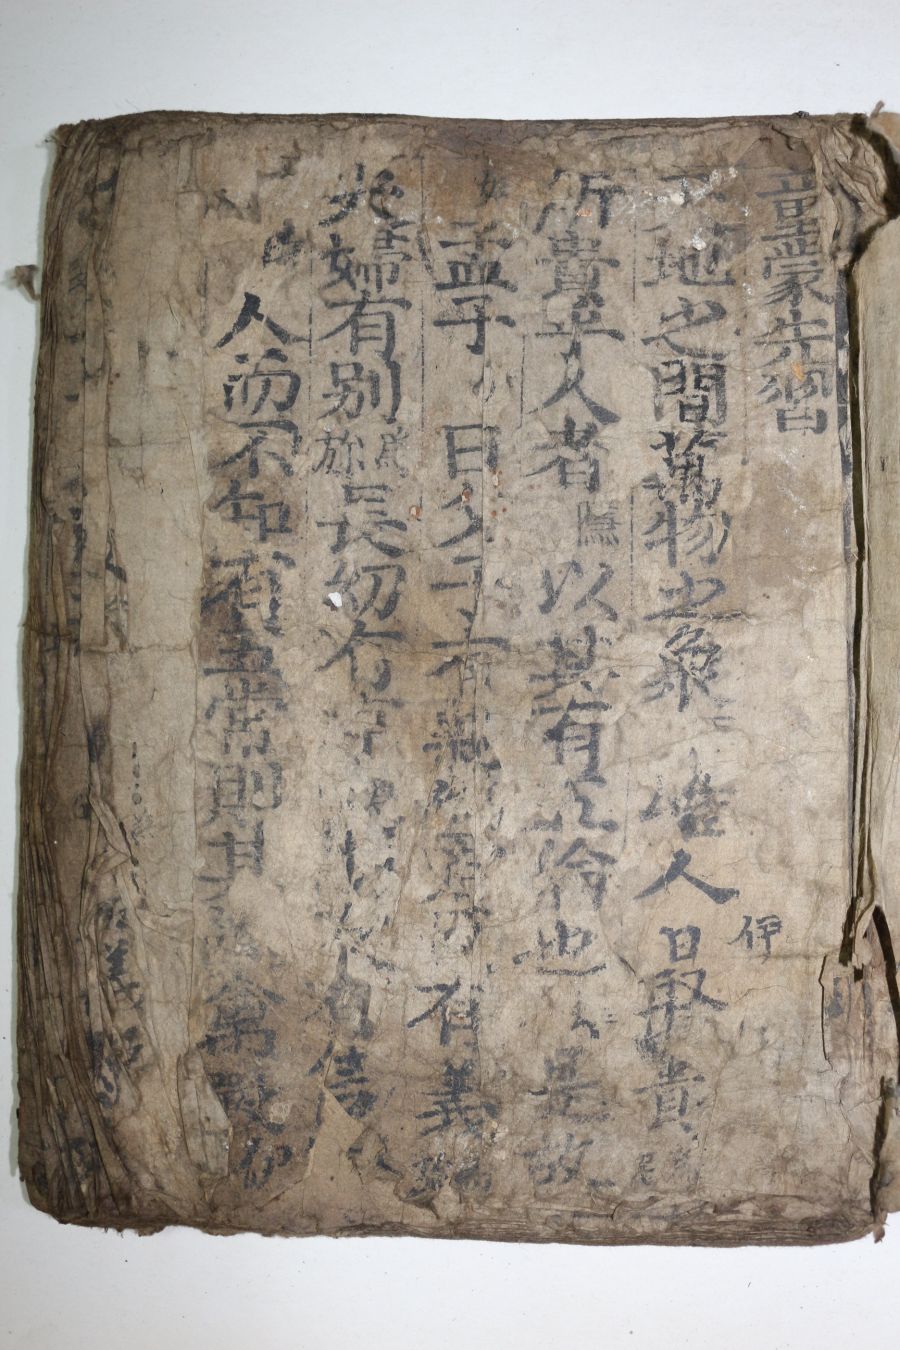 童蒙先習
地之間萬物之衆 惟人 伊 最貴
所貴乎人者 以其有五倫也 是故
孟子 曰父子有親 君臣 有義
夫婦有别 長幼有序 朋友有信
人而不知有五常則其 禽獸